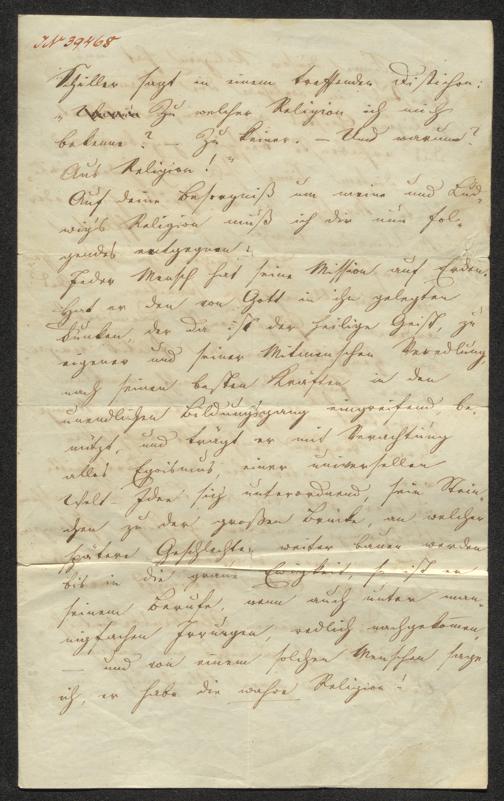 JN 39468
Schiller sagt in einem treffenden Distichon:
" Zu welcher Religion ich mich
bekenne? — Zu keiner. — Und warum?
Aus Religion!"
Auf deine Besorgniß um meine und Lud-
wig's Religion muß ich dir nun fol-
gendes entgegnen:
Jeder Mensch hat seine Mission auf Erden.
Hat er den von Gott in ihn gelegten
Funken, der da ist der heilige Geist, zu
eigener und seiner Mitmenschen Veredlung,
nach seinen besten Kräften in den
unendlichen Bildungsgang eingreifend, be-
nützt, und trägt er mit Verachtung
alles Egoismus einer universellen
Welt-Idee sich unterordnend, sein Stein-
chen zu der großen Brücke, an welcher
spätere Geschlechter weiter bauen werden
bis in die graue Ewigkeit, so ist er
seinem Berufe, wenn auch unter man-
nigfachen Irrungen, redlich nachgekommen,
— und von einem solchen Menschen sage
ich, er habe die wahre Religion!